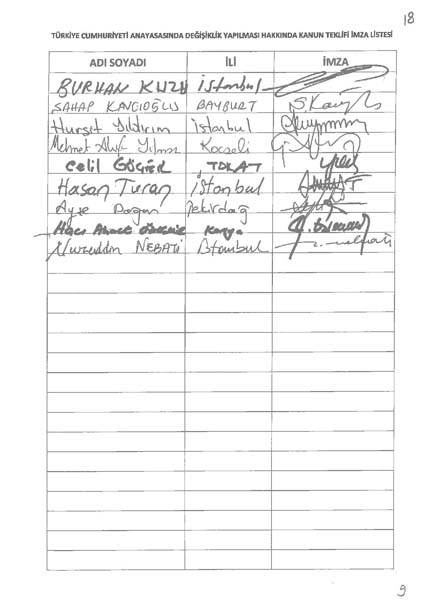 18
TÜRKİYE CUMHURİYETİ ANAYASASINDA DEĞİŞİKLİK YAPILMASI HAKKINDA KANUN TEKLİFİ İMZA LİSTESİ
ADI SOYADI İLİ İMZA
BURHAN KUZU İstanbul
SAHAP KAVCIOĞLU BAYBURT S.Kavcıoğlu
Hurşit Yıldırım İstanbul
Mehmet Akif Yılmaz Kocaeli
Celil Göçer TOKAT
Hasan Turan İstanbul
Ayşe Doğan Tekirdağ
Hacı Ahmet Özdemir Konya
Nureddin NEBATİ İstanbul
9